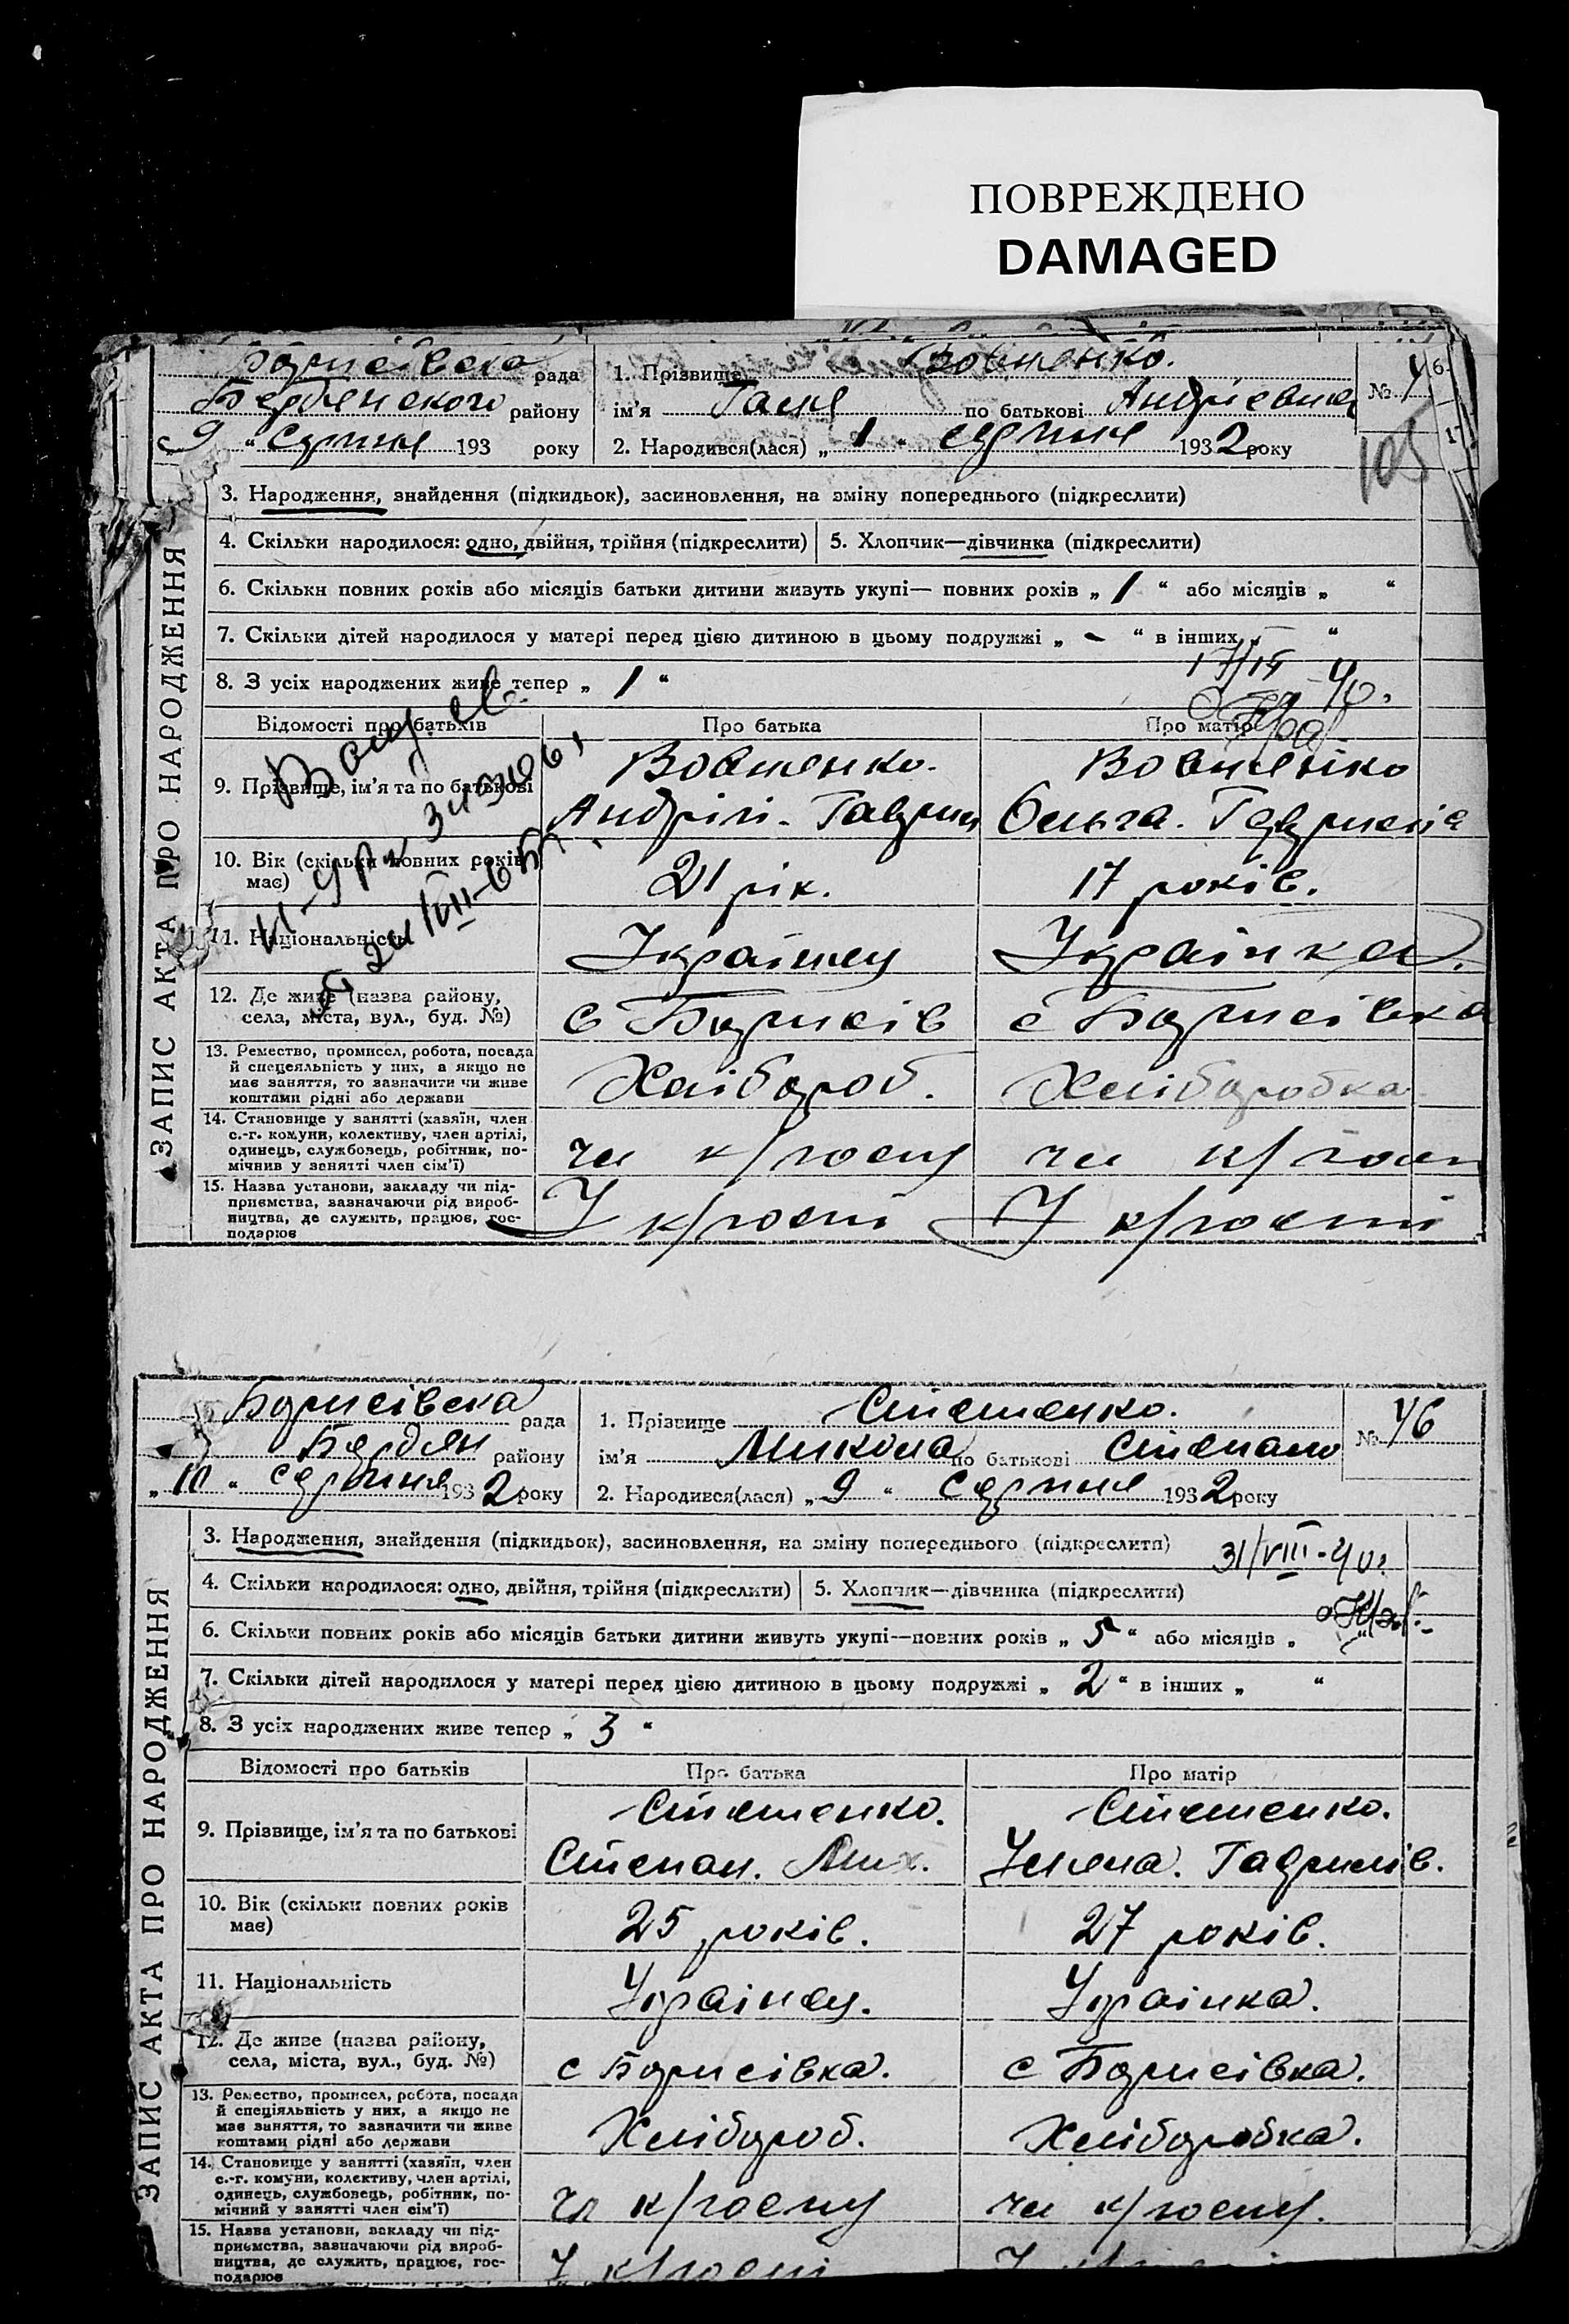 ПОВРЕЖДЕНО
DAMAGED
Борисівська рада
Бердянського району
9 " серпня 193 року
1. Прізвище Вовченко.
ім'я Галя по батькові Андріевна
2. Народився(лася) „ 1 " серпня 1932 року
№
105
ЗАПИС АКТА ПРО НАРОДЖЕННЯ
3. Народження, знайдення (підкидьок), засиновлення, на зміну попереднього (підкреслити)
4. Скільки народилося: одно, двійня, трійня (підкреслити)
5. Хлопчик—дівчинка (підкреслити)
6. Скільки повних років або місяців батьки дитини живуть укупі— повних років „ 1 " або місяців „ "
7. Скільки дітей народилося у матері перед цією дитиною в цьому подружжі „ - " в інших „ "
8. З усіх народжених живе тепер „ 1 "
Відомості про батьків
Про батька
Про матір
9. Прізвище, ім'я та по батькові
Вовченко.
Андрій. Гаврил
Вовченко
Ольга. Гаврилів
10. Вік (скільки повних років має)
21 рік.
17 років.
11. Національність
Українец
Українка.
12. Де живе (назва району,
села, міста, вул., буд. №)
с Борисів
с Борисівка
13. Ремество, промисел, робота, посада
й спецеяльність у них, а якщо не
має заняття, то зазначити чи живе
коштами рідні або держави
Хлібороб.
Хліборобка
14. Становище у занятті (хазяїн, член
с.-г. комуни, колективу, член артілі,
одинець, службовець, робітник, по-
мічнив у занятті член сім'ї)
чл к/госпу
чл к/госп
15. Назва установи, закладу чи під-
приємства, зазначаючи рід вироб-
ництва, де служить, працює, гос-
подарює
У к/госпі
У к/госпі
Борисівська рада
Бердян району
„ 10 " серпня 1932 року
1. Прізвище Стешенко.
ім'я Микола по батькові Степано
2. Народився(лася) „ 9 " Серпня 1932 року
№ 46
ЗАПИС АКТА ПРО НАРОДЖЕННЯ
3. Народження, знайдення (підкидьок), засиновлення, на зміну попереднього (підкреслити)
31/VIII-40.
4. Скільки народилося: одно, двійня, трійня (підкреслити)
5. Хлопчик—дівчинка (підкреслити)
6. Скільки повних років або місяців батьки дитини живуть укупі—повних років „ 5 " або місяців „ "
7. Скільки дітей народилося у матері перед цією дитиною в цьому подружжі „ 2 " в інших „ "
8. З усіх народжених живе тепер „ 3 "
Відомості про батьків
Про батька
Про матір
9. Прізвище, ім'я та по батькові
Стешенко.
Степан. Мих.
Стешенко.
Уляна. Гаврилів.
10. Вік (скільки повних років
має)
25 років.
27 років.
11. Національність
Українец.
Українка.
12. Де живе (назва району,
села, міста, вул., буд. №)
с Борисівка.
с Борисівка.
13. Ремество, промисел, робота, посада
й спеціяльність у них, а якщо не
має заняття, то зазначити чи живе
коштами рідні або держави
Хлібороб.
Хліборобка.
14. Становище у занятті (хазяїн, член
с.-г. комуни, колективу, член артілі,
одинець, службовець, робітник, по-
мічний у занятті член сім'ї)
чл к/госпу
чл к/госпу.
15. Назва установи, закладу чи під-
приємства, зазначаючи рід вироб-
ництва, де служить, працює, гос-
подарює
У к/госпі